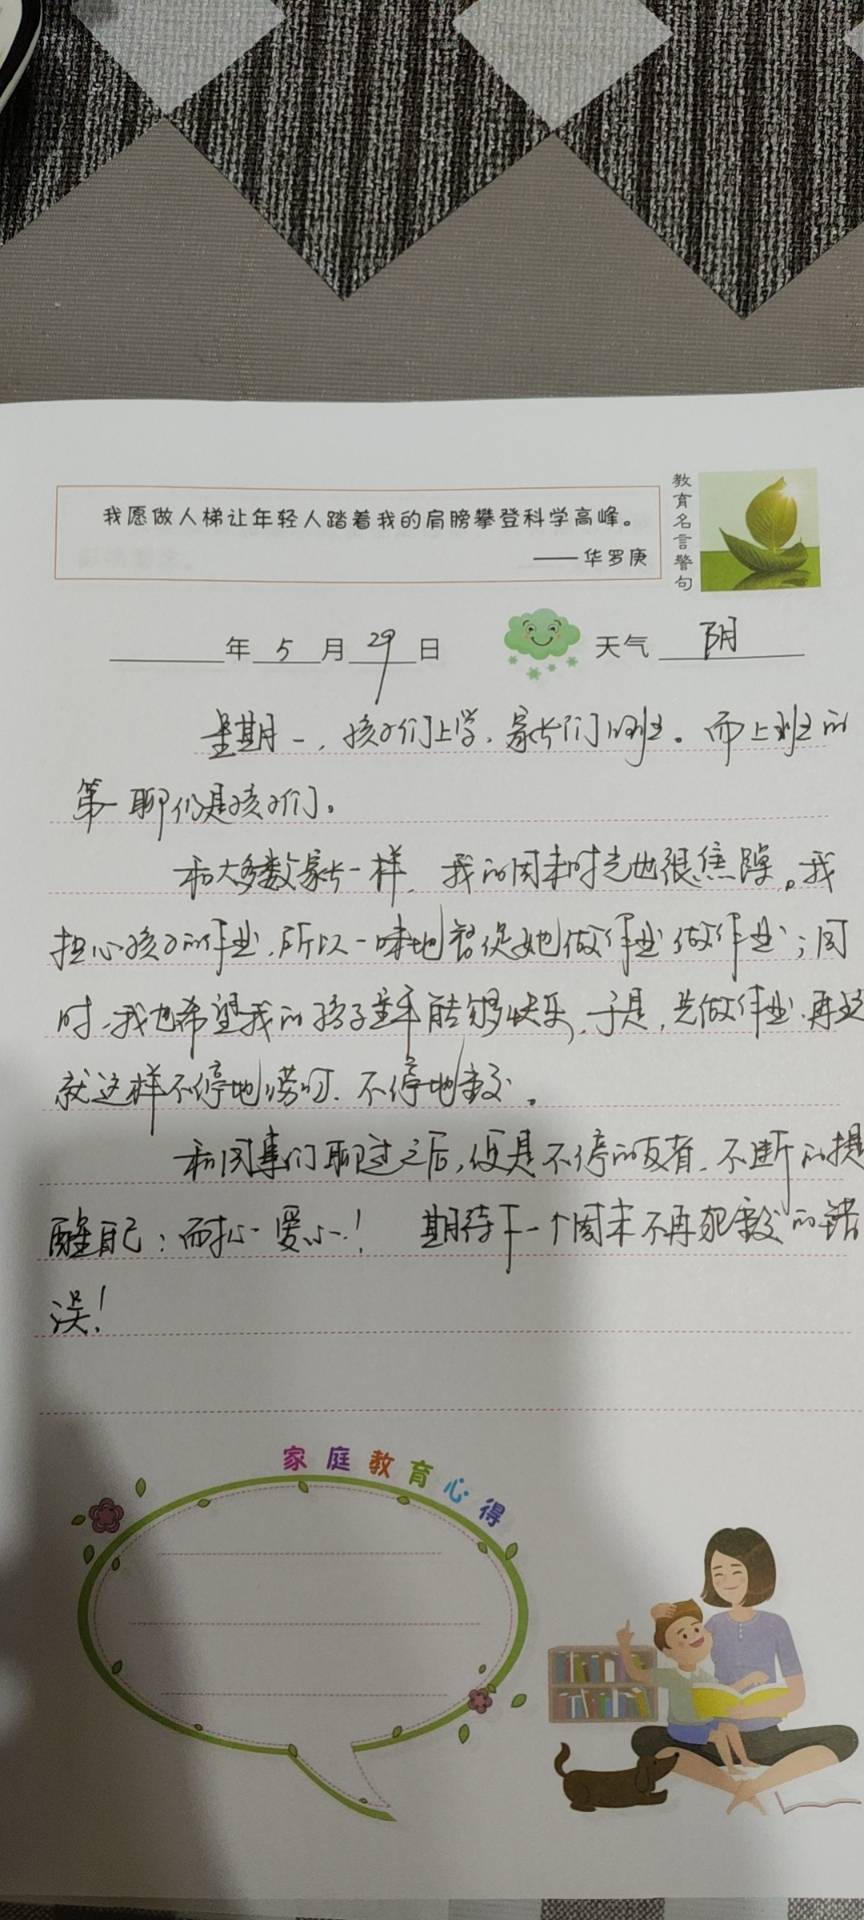 我愿做人梯让年轻人踏着我的肩膀攀登科学高峰。
——华罗庚
教育名言警句
年 5 月 29 日 天气 阴
星期一，孩子们上学、家长们上班。而上班的
第一聊仍是孩子们。
和大多数家长一样，我的周末时光也很焦躁。我
担心孩子的作业，所以一味地督促她做作业做作业；同
时，我也希望我的孩子童年能够快乐，于是，先做作业，再
就这样不停地唠叨、不停地
和同事们聊过之后，便是不停的反省，不断的提
醒自己：耐心爱心！ 期待下一个周末不再犯的错
误！
家庭教育心得